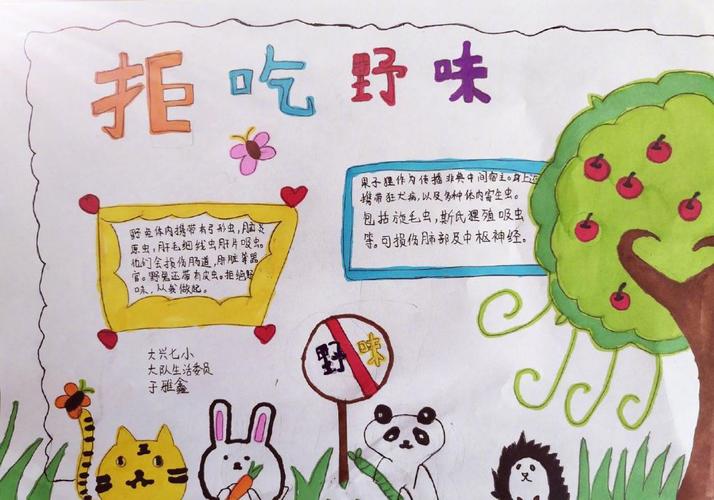 拒吃野味
果子狸作为传播非典中间宿主。身上还
携带狂犬病，以及多种体内寄生虫。
包括旋毛虫，斯氏狸殖吸虫
等。可损伤肺部及中枢神经。
野兔体内携带有弓形虫，脑炎
原虫，肝毛细线虫肝片吸虫。
他们会损伤肠道，肝脏等器
官。野兔还带有尖虫。拒绝野
味，从我做起。
大兴七小
大队生活委员
于雅鑫
野味